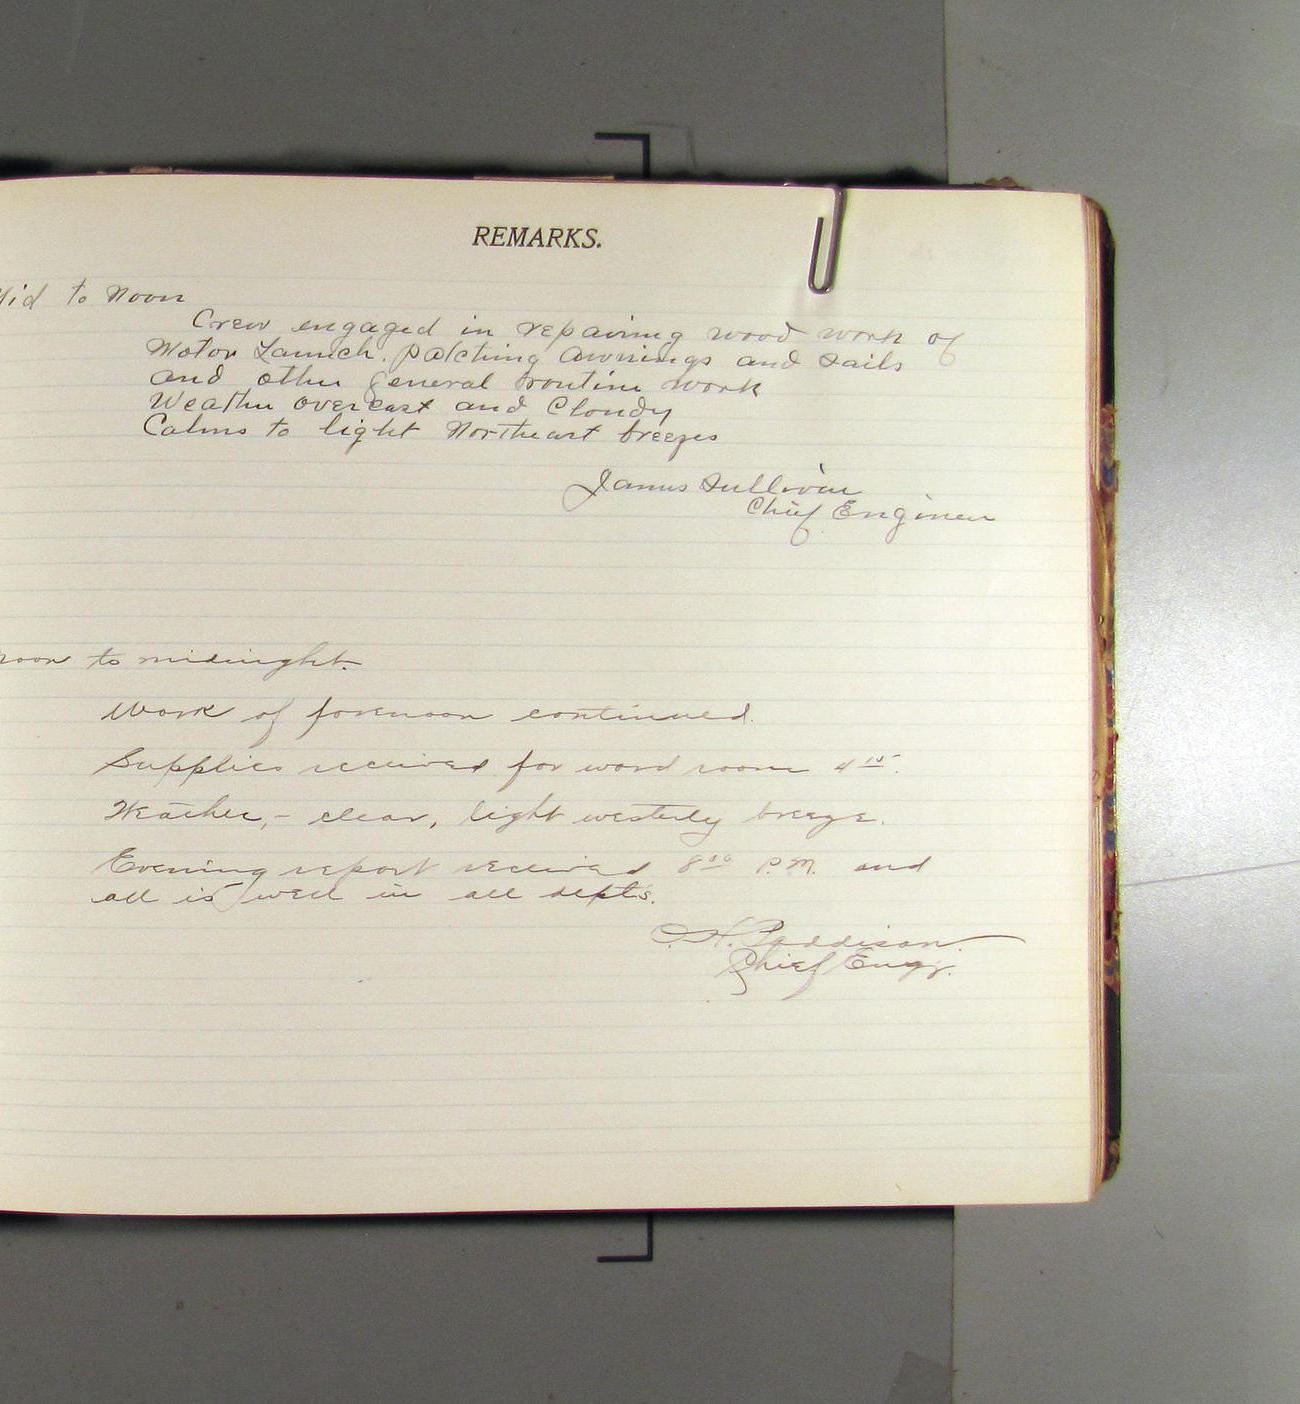 REMARKS.
Mid to Noon
Crew engaged in repairing wood work of
Motor Launch. patching awnings and sails
and other general routine work
Weather overcast and Cloudy
Calms to light Northeast breezes
James Sullivan
Chief Engineer
noon to midnight.
Work of forenoon continued.
Supplies received for ward room 4 15.
Weather,- clear, light westerly breeze.
Evening report received 8 00 P.M. and
all is well in all depts.
C. H. Paddison.
Chief Engr.